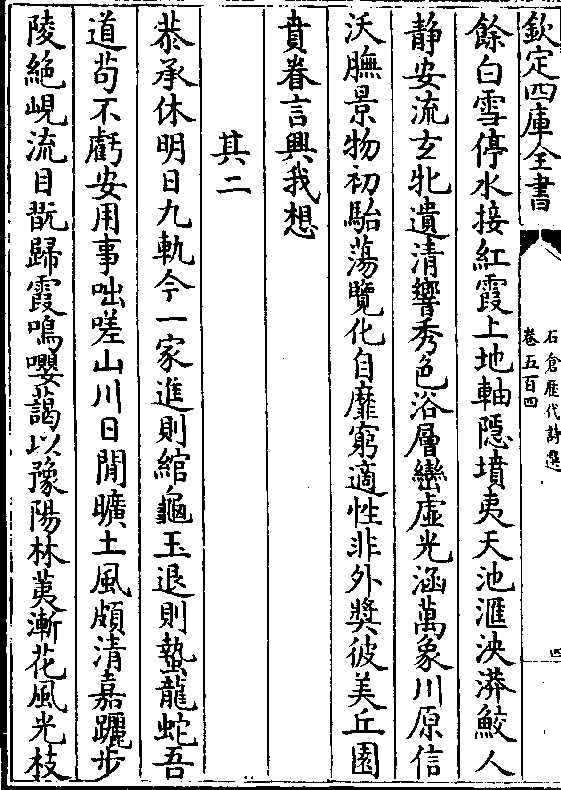 欽定四庫全書
石倉歷代詩選
卷五百四
四
餘白雪停水接紅霞上地軸隱墳夷天池滙泱漭鮫人
静安流玄牝遺清響秀色浴層巒虛光涵萬象川原信
沃膴景物初駘蕩覽化自靡窮適性非外奬彼美丘園
賁眷言興我想
其二
恭承休明日九軌今一家進則綰龜玉退則蟄龍蛇吾
道苟不虧安用事咄嗟山川日閒曠土風頗清嘉躧步
陵絶峴流目翫歸霞鳴嚶藹以豫陽林荑漸花風光枝